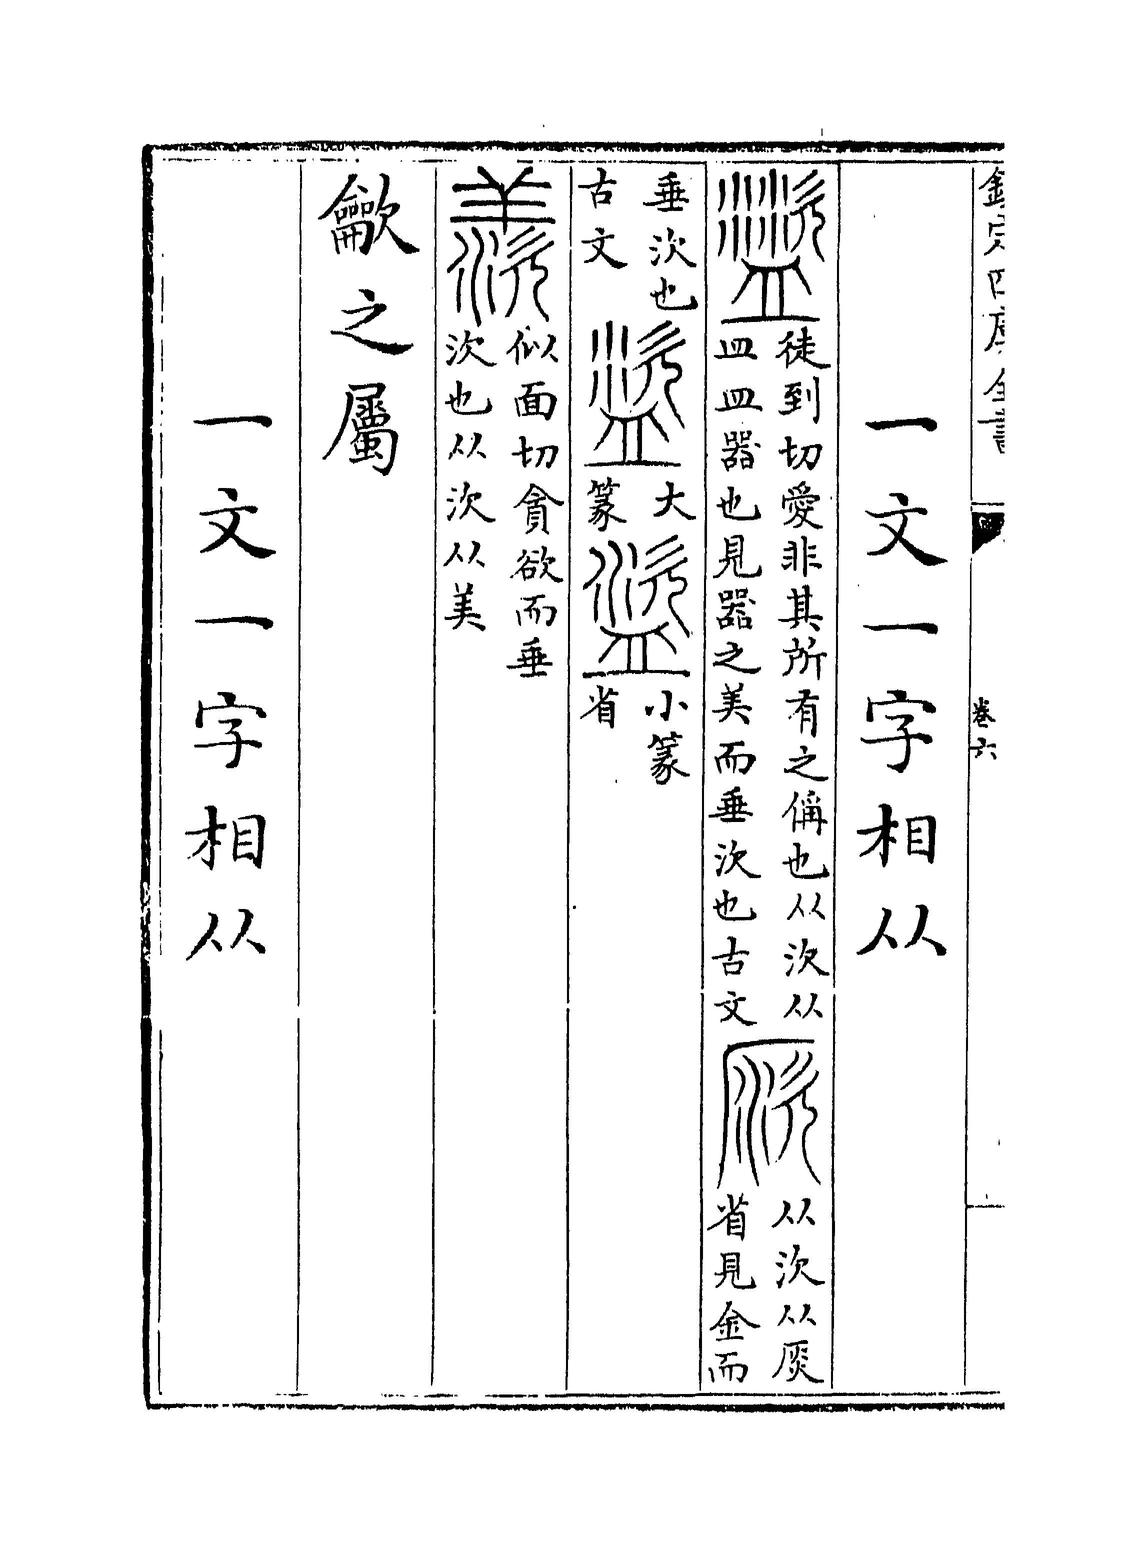 欽定四庫全書
卷六
一文一字相从
盜
徒到切愛非其所有之偁也从㳄从
皿皿器也見器之美而垂㳄也古文
从㳄从
省見金而
垂㳄也
古文
盜
大
篆
盜
小篆
省
羨
似面切貪欲而垂
㳄也从㳄从美
龡之屬
一文一字相从